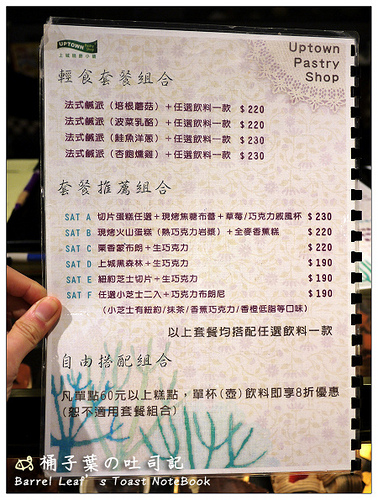 UPTOWN
上城糕餅小舖
Uptown
Pastry
Shop
輕食套餐組合
法式鹹派（培根蘑菇）+任選飲料一款 $220
法式鹹派（波菜乳酪）+任選飲料一款 $220
法式鹹派（鮭魚洋蔥）+任選飲料一款 $230
法式鹹派（杏鮑燻雞）+任選飲料一款 $230
套餐推薦組合
SAT A 切片蛋糕任選+現烤焦糖布蕾+草莓/巧克力戚風杯 $230
SAT B 現烤火山蛋糕（熱巧克力岩漿）+全麥香蕉糕 $220
SAT C 栗香蒙布朗+生巧克力 $220
SAT D 上城黑森林+生巧克力 $190
SAT E 紐約芝士切片+生巧克力 $190
SAT F 任選小芝士二入+巧克力布朗尼 $190
（小芝士有紐約/抹茶/香蕉巧克力/香橙低脂等口味）
以上套餐均搭配任選飲料一款
自由搭配組合
凡單點60元以上糕點，單杯(壺)飲料即享8折優惠
(恕不適用套餐組合)
桶子葉の吐司記
Barrel Leaf s Toast NoteBook